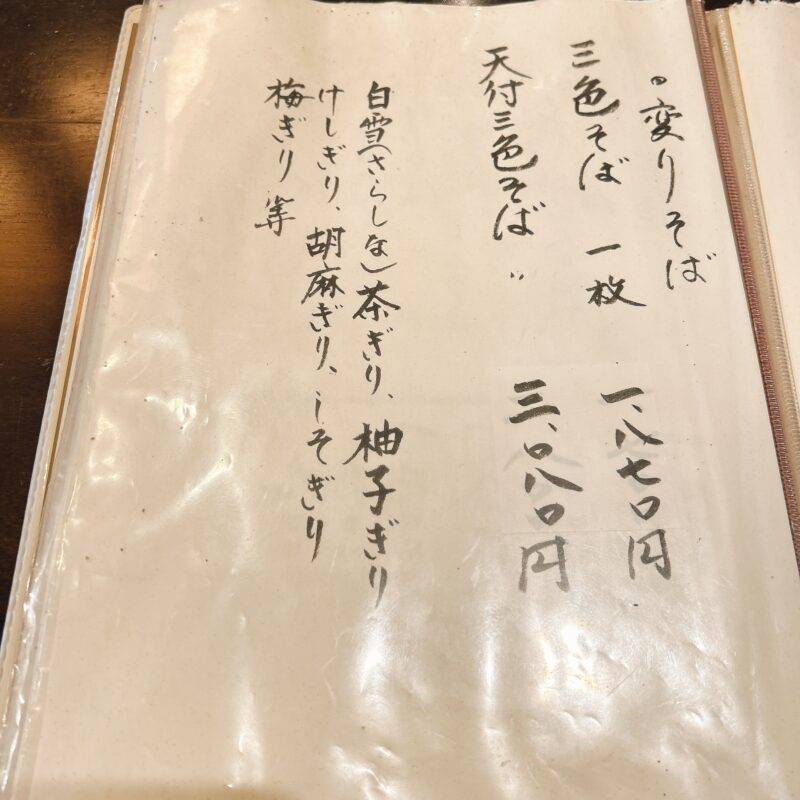 ・変りそば
三色そば 一枚 一、八七〇円
天付三色そば 〃 三、〇八〇円
白雪(さらしな)茶ぎり、柚子ぎり
けしぎり、胡麻ぎり、しそぎり
梅ぎり 等